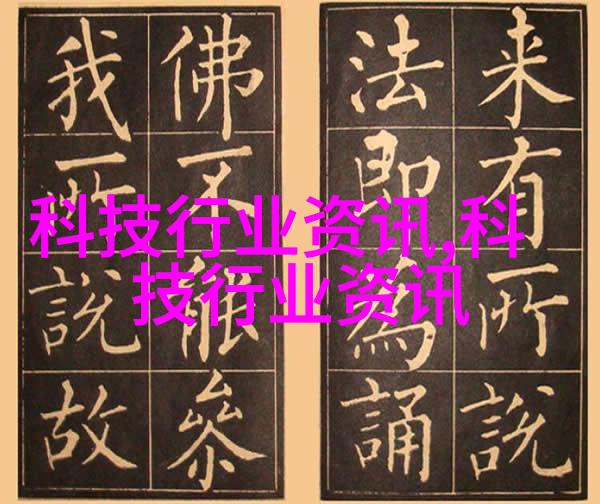 来有所說
法即為誦
佛不能叅
我所說故
科技行业资讯,科
技行业资讯